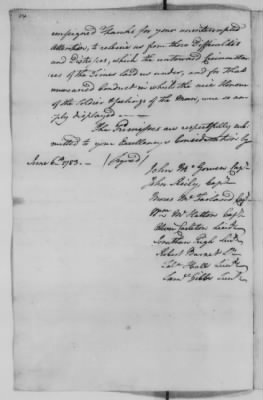 unfeigned Thanks for your uninterrupted
Attention, to relieve us from those Difficulties
and Distresses, which the untoward Circumstan-
ces of the Times laid us under, and for that
unwearied Conduct in which the nice Honour
of the Soldier & feelings of the Man, were so am-
ply displayed —
The Premises are respectfully sub-
mitted to your Excellency's Consideration by
June 6th 1783. — (Signed)
John McGowen Capt.
John Reily Capt.
Moses McFarland Capt.
Wm. McHatton Capt.
Lieut.
Jonathan Pugh Lieut.
Robert Barnet Do
Hull Lieut.
Saml. Gibbs Lieut.